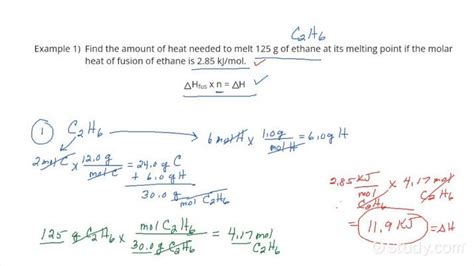 C₂H₆
Example 1) Find the amount of heat needed to melt 125 g of ethane at its melting point if the molar
heat of fusion of ethane is 2.85 kJ/mol. ✓
△Hfus x n = △H ✓
① C₂H₆ → 6 mol H x 1.0 g / mol H = 6.0 g H
2 mol C x 12.0 g / mol C = 24.0 g C
+ 6.0 g H
30.0 g / mol C₂H₆
125 g C₂H₆ x mol C₂H₆ / 30.0 g C₂H₆ = 4.17 mol C₂H₆
2.85 KJ / mol C₂H₆ x 4.17 mol C₂H₆
= 11.9 KJ = △H
Study.com